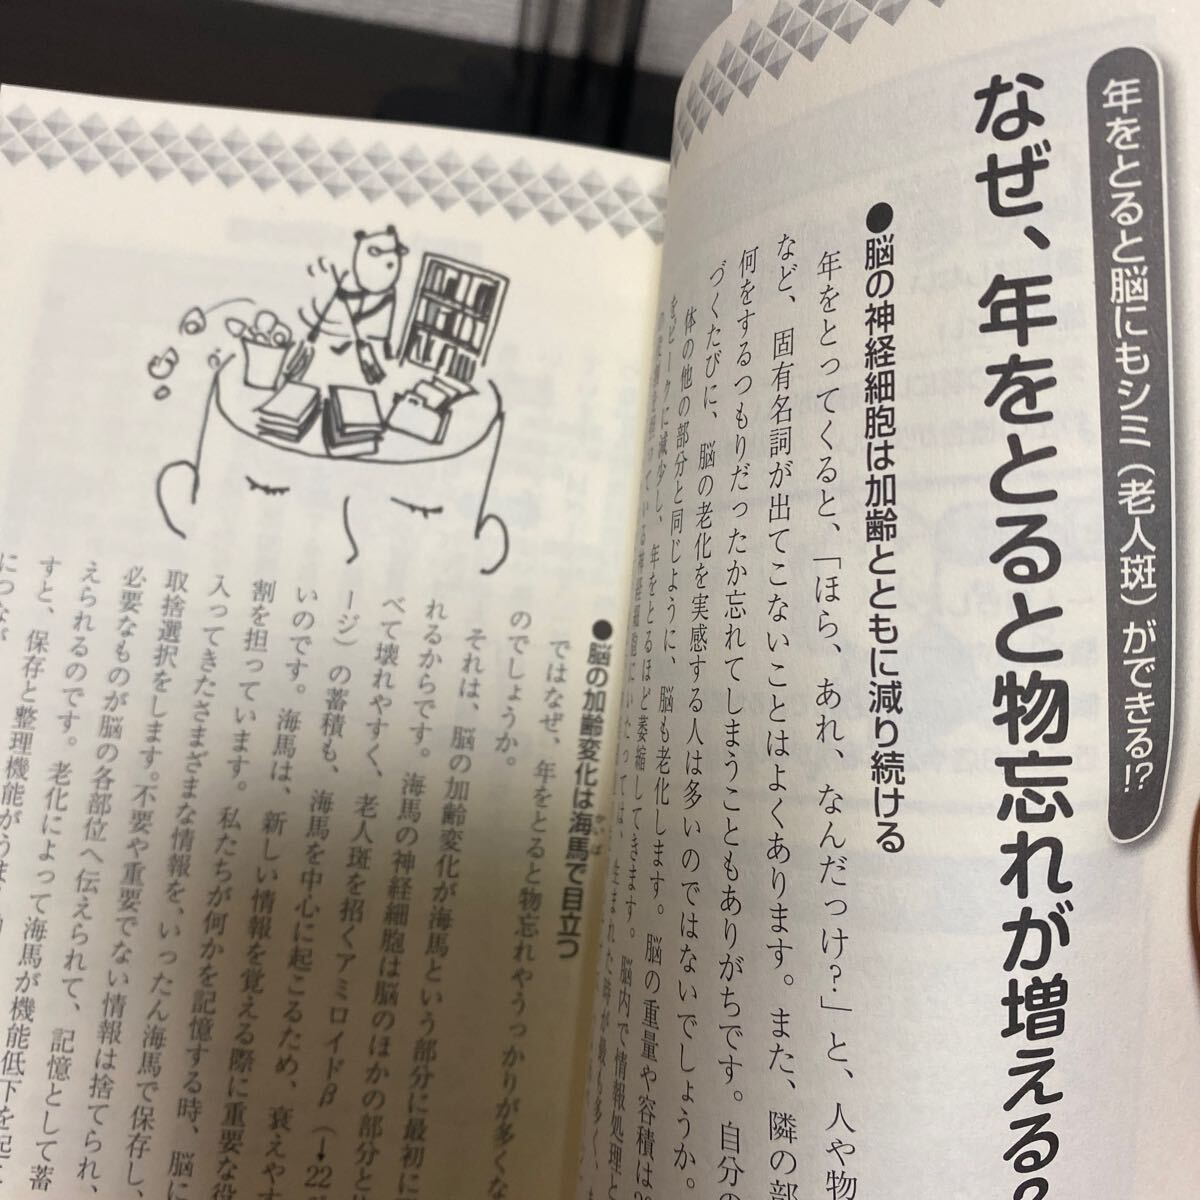 年をとると脳にもシミ（老人斑）ができる!?
なぜ、年をとると物忘れが増える?
●脳の神経細胞は加齢とともに減り続ける
年をとってくると、「ほら、あれ、なんだっけ?」と、人や物
など、固有名詞が出てこないことはよくあります。また、隣の部
何をするつもりだったか忘れてしまうこともありがちです。自分の
づくたびに、脳の老化を実感する人は多いのではないでしょうか。
体の他の部分と同じように、脳も老化します。脳の重量や容積は
をピークに減少し、年をとるほど萎縮してきます。脳内で情報処理と
を担っている神経細胞にいたっては、生まれた時が最も多く、
●脳の加齢変化は海馬で目立つ
かいば
ではなぜ、年をとると物忘れやうっかりが多くな
のでしょうか。
それは、脳の加齢変化が海馬という部分に最初に
れるからです。海馬の神経細胞は脳のほかの部分と
べて壊れやすく、老人斑を招くアミロイドβ（→22
ージ）の蓄積も、海馬を中心に起こるため、衰えやす
いのです。海馬は、新しい情報を覚える際に重要な役
割を担っています。私たちが何かを記憶する時、脳に
入ってきたさまざまな情報を、いったん海馬で保存し、
取捨選択をします。不要や重要でない情報は捨てられ、
必要なものが脳の各部位へ伝えられて、記憶として蓄
えられるのです。老化によって海馬が機能低下を起こ
すと、保存と整理機能がうま
につなが